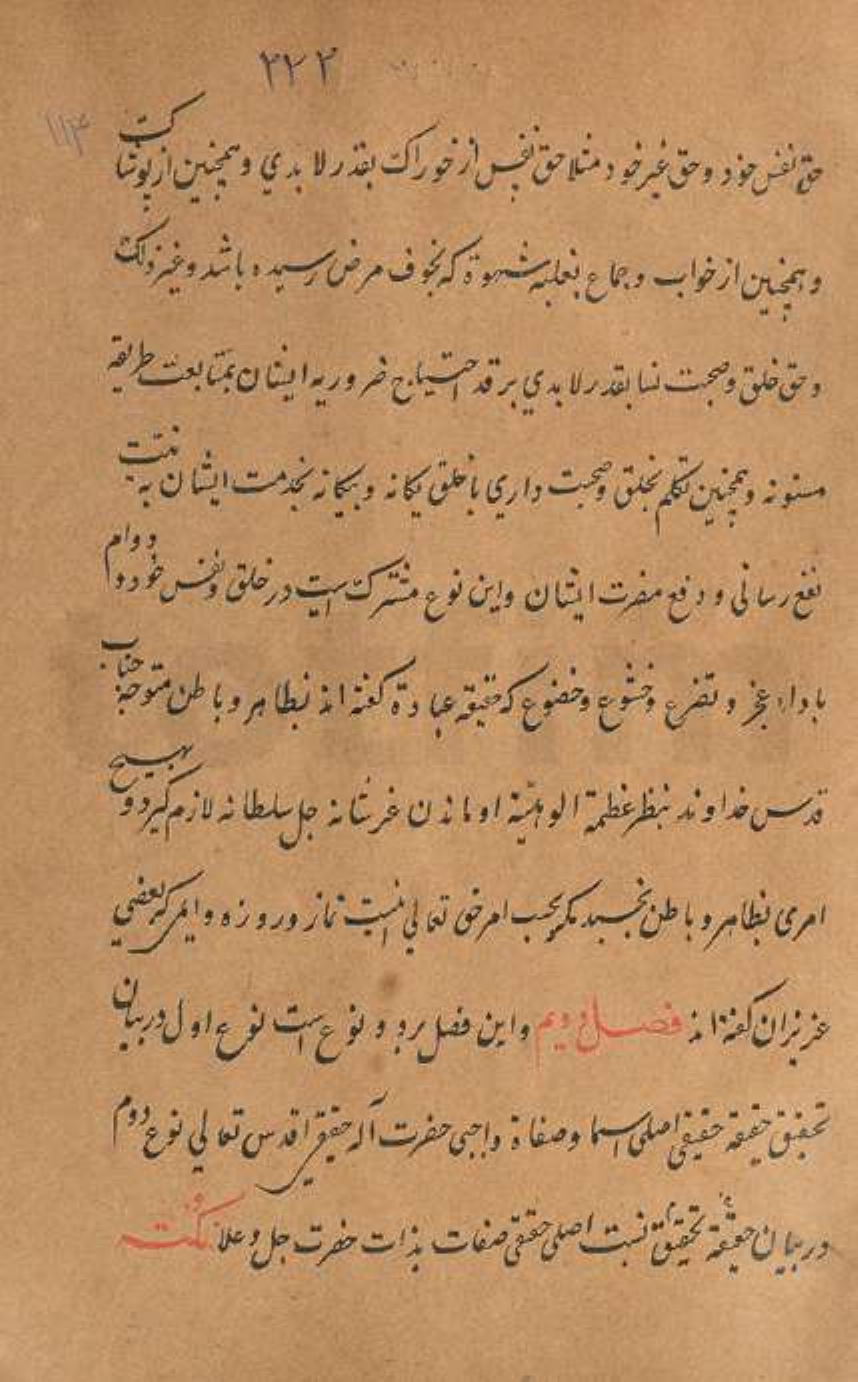 ۲۲۲
۱۱۴
حق نفس خود و حق غیر خود مثلا حق نفس از خوراک بقدر لا بدی و همچنین از پوشاکت
و همچنین از خواب و جماع بغلبه شهوة که بخوف مرض رسیده باشد و غیر ذلک
و حق خلق و صحبت نسا بقدر لا بدی بر قدر احتیاج ضروریه ایشان بمتابعت طریقه
مسنونه و همچنین تکلم بخلق و صحبت داری با خلق یکانه و بیکانه بخدمت ایشان به نیت
نفع رسانی و دفع مضرت ایشان و این نوع مشترکست در خلق و نفس خود و دوام
با داء عجز و تضرع و خشوع و خضوع که حقیقة عبادة کفته اند بظاهر و باطن متوجه جناب
قدس خداوند بنظر عظمة الوهیة او ماندن عز شانه جل سلطانه لازم کیرد و بهیچ
امری بظاهر و باطن نجسبد مکر بحب امر حق تعالی نماز و روزه که بعضی
عزیزان کفته اند فصل دویم و این فصل بر دو نوع است نوع اول در بیان
تحقیق حقیقة حقیقی اصلی اسما و صفاة واجبی حضرت آله حقیقی اقدس تعالی نوع دوم
در بیان حقیقة تحقیق نسبت اصلی حقیقی صفات بذات حضرت جل و علا نکته